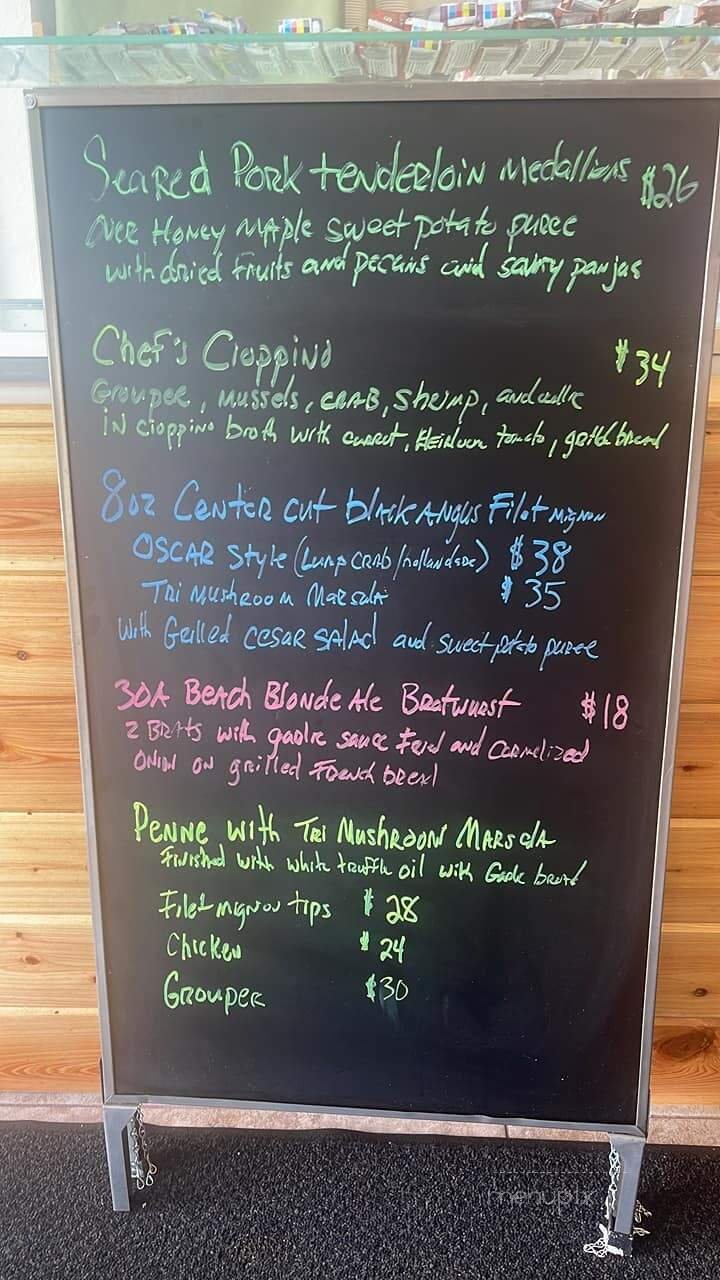 Seared Pork tenderloin Medallions $26
over Honey Maple sweet potato puree
with dried Fruits and pecans and savory
Chef's Cioppino $34
Grouper, mussels, CRAB, Shrimp,
in cioppino broth with carrot, Heirloom tomato, grilled bread
8oz Center cut black Angus Filet mignon
OSCAR Style (Lump CRAb/hollandase) $38
Tri Mushroom Marsala $35
With Grilled CESAR SALAd and sweet potato puree
30A Beach Blonde Ale Bratwurst $18
2 BRATS with garlic sauce and Carmelized
ONION ON grilled French bread
Penne with Tri Mushroom Marsala
Finished with white truffle oil with Garlic bread
Filet mignon tips $28
Chicken $24
Grouper $30
menupix